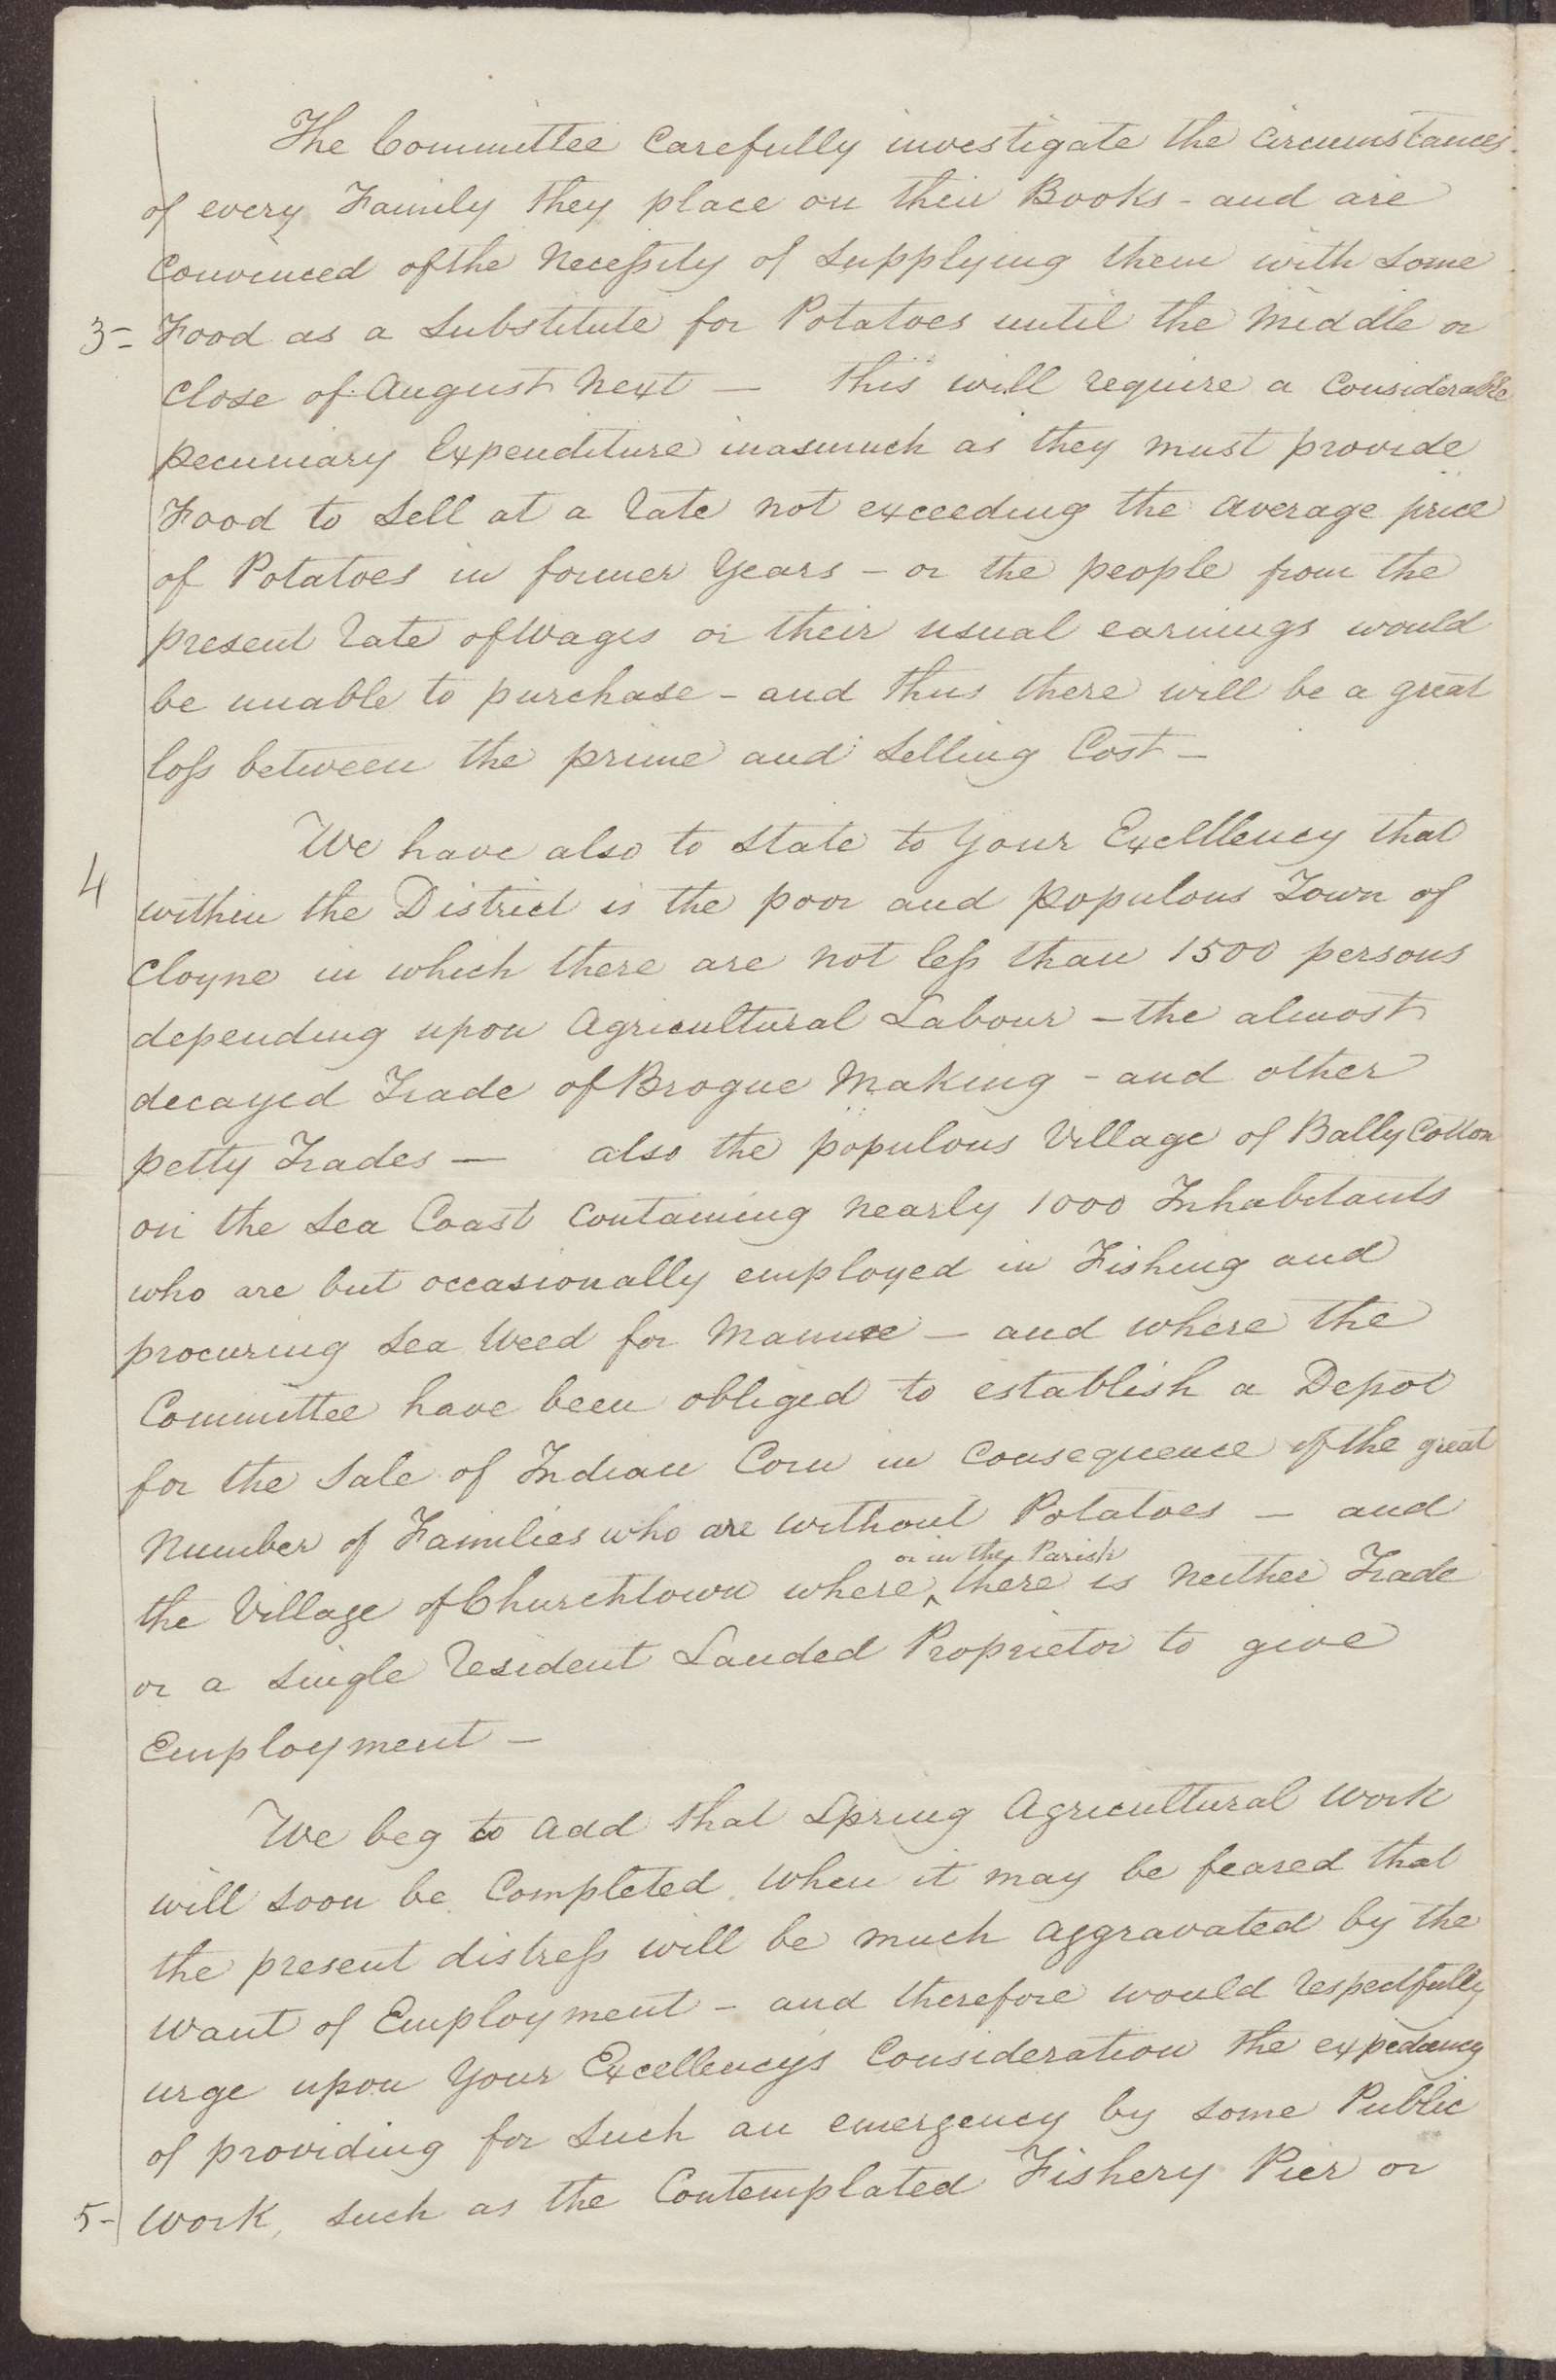 The Committee Carefully investigate the Circumstances
of every Family they place on their Books - and are
Convinced of the Necessity of Supplying them with Some
3- Food as a Substitute for Potatoes until the Middle or
Close of August Next — this will require a Considerable
pecuniary Expenditure inasmuch as they must provide
Food to Sell at a rate not exceeding the average price
of Potatoes in former Years - or the people from the
present rate of Wages or their usual earnings would
be unable to purchase - and thus there will be a great
loss between the prime and Selling Cost -
We have also to State to Your Excelllency that
4 within the District is the poor and populous Town of
Cloyne in which there are not less than 1500 persons
depending upon Agricultural Labour - the almost
decayed Trade of Brogue Making - and other
petty Trades — also the populous Village of Bally Cotton
on the Sea Coast Containing nearly 1000 Inhabitants
who are but occasionally employed in Fishing and
procuring Sea Weed for Manure - and where the
Committee have been obliged to establish a Depot
for the Sale of Indian Corn in Consequence of the great
Number of Families who are without Potatoes - and
or in the Parish
the Village of Churchtown where ‸ there is Neither Trade
or a Single resident Landed Proprietor to give
Employment -
We beg to add that Spring Agricultural Work
will soon be Completed, when it may be feared that
the present distress will be much aggravated by the
want of Employment - and therefore would respectfully
urge upon Your Excellency's Consideration the expediency
of providing for Such an emergency by some Public
5- Work, Such as the Contemplated Fishery Pier or